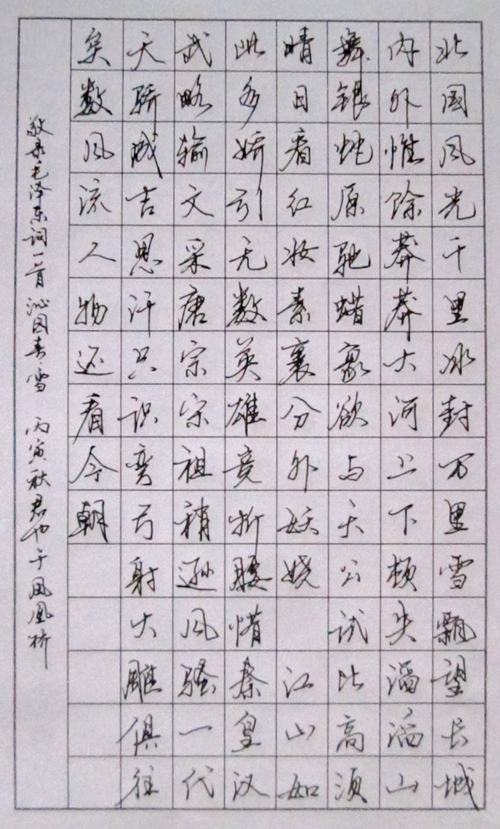 北国风光千里冰封万里雪飘望长城
内外惟馀莽莽大河上下顿失滔滔山
舞银蛇原驰蜡象欲与天公试比高须
晴日看红妆素裹分外妖娆 江山如
此多娇引无数英雄竞折腰惜秦皇汉
武略输文采唐宗宋祖稍逊风骚一代
天骄成吉思汗只识弯弓射大雕俱往
矣数风流人物还看今朝
敬录毛泽东词一首 沁园春雪 丙寅秋君也于凤凰桥